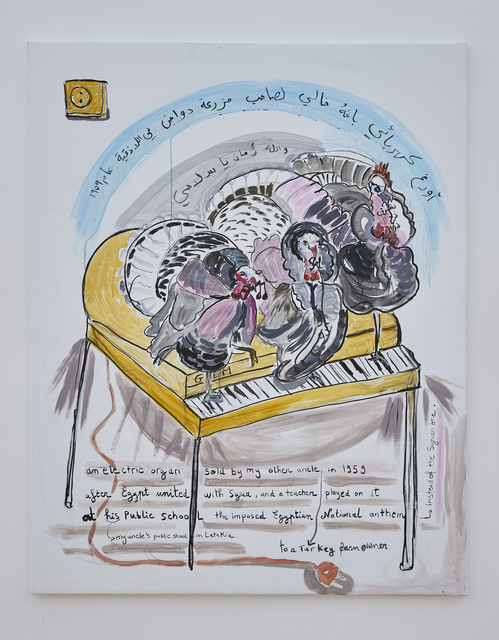 أورغ كهربائي باعهُ خالي لصاحب مزرعة دواجن في اللاذقية عام ١٩٥٩
والله زمان يا سلاحي
GEM
an electric organ sold by my other uncle, in 1959
after Egypt united with Syria, and a teacher played on it
at his Public school the imposed Egyptian National anthem
my uncle's public shool in Latakia.
to a Turkey farm owner
instead of the Syrian one.